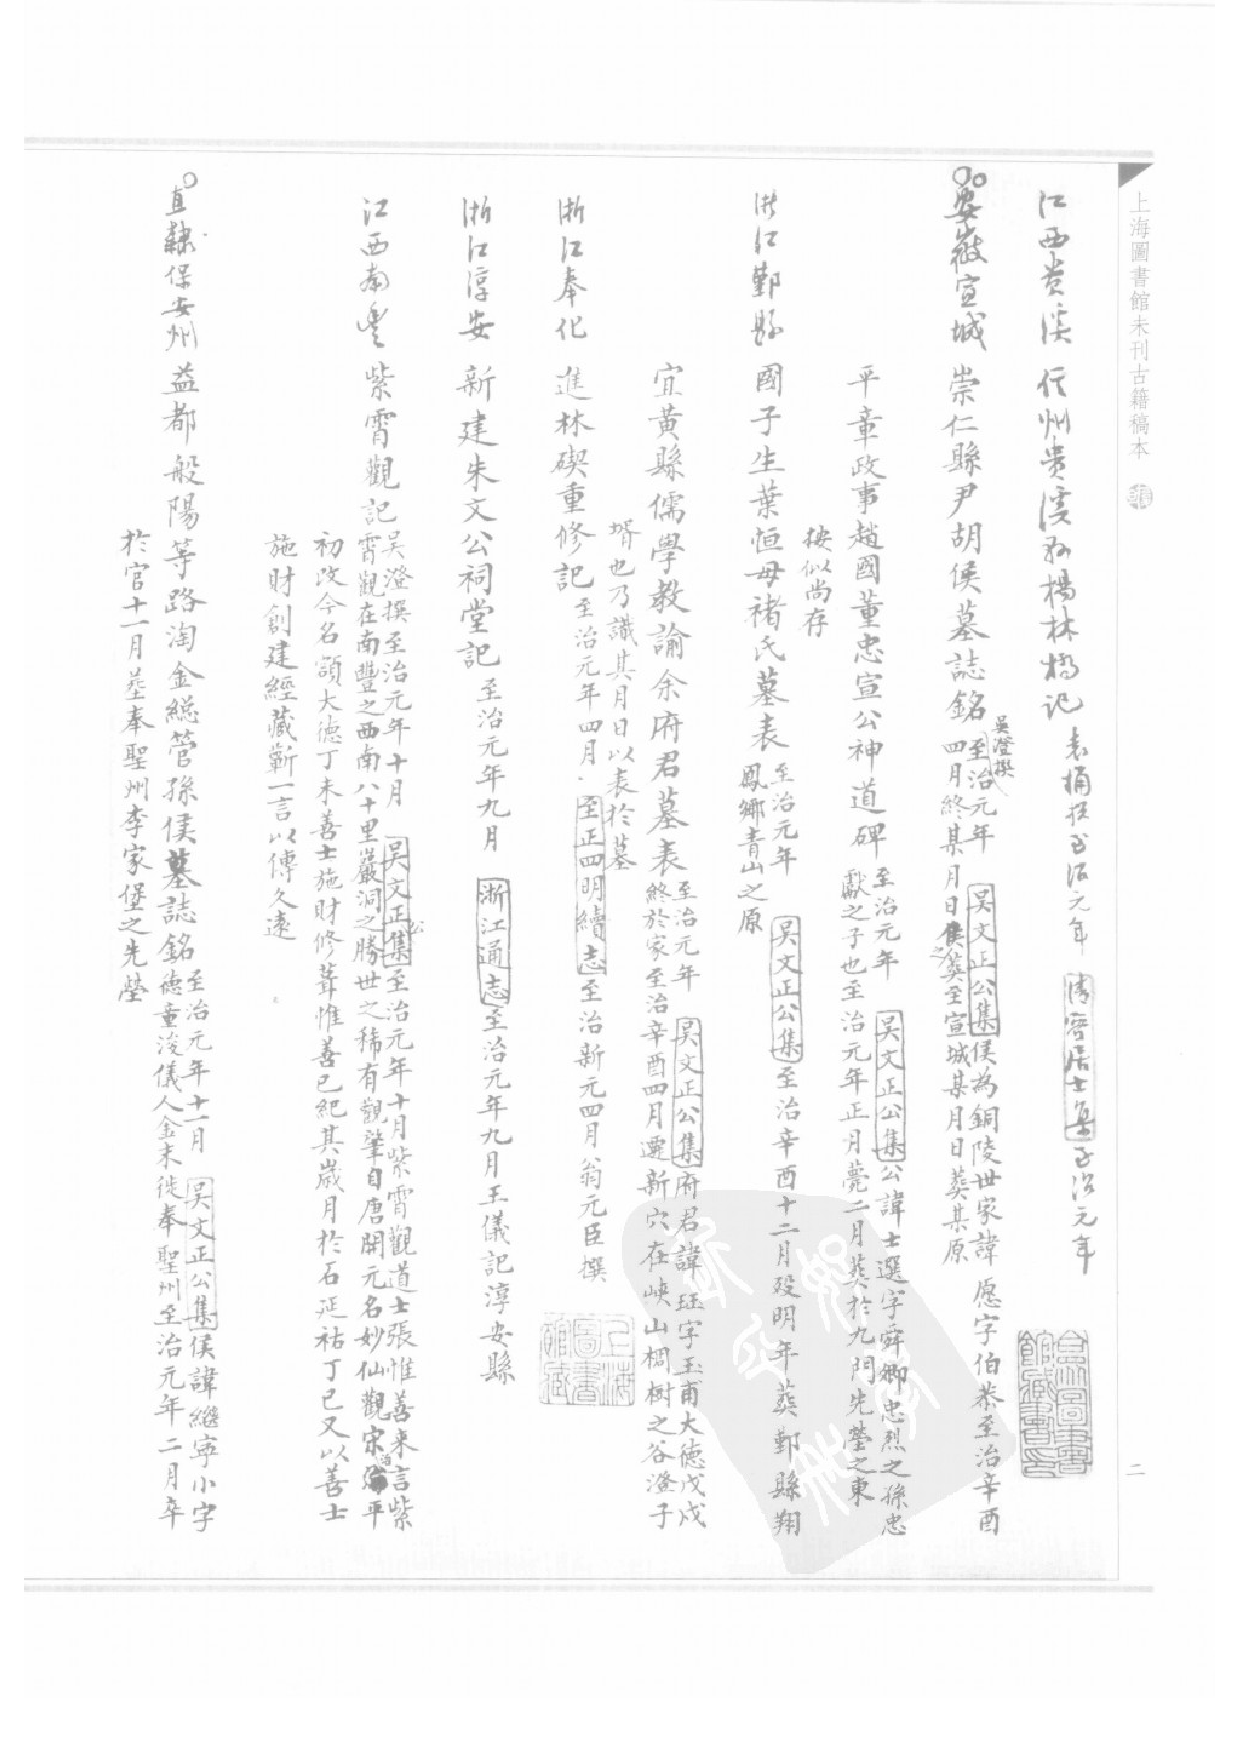 上海圖書館未刊古籍稿本
二
江西贵溪 信州贵溪縣楊林橋记 袁桷撰至治元年 清容居士集 至治元年
安徽宣城 崇仁縣尹胡侯墓誌銘 吳澄撰 至治元年 吳文正公集 侯為銅陵世家諱 愿字伯恭至治辛酉
四月終某月日侯之葬至宣城某月日葬某原
平章政事趙國董忠宣公神道碑 至治元年 吳文正公集 公諱士選字舜卿忠烈之孫忠
獻之子也至治元年正月薨二月葬於九門先塋之東
按似尚存
浙江鄞縣 國子生葉恒母褚氏墓表 至治元年 吳文正公集 至治辛酉十二月歿明年葬鄞縣翔
鳳鄉青山之原
宜黃縣儒學教諭余府君墓表 至治元年 吳文正公集 府君諱珏字玉甫大德戊戌
終於家至治辛酉四月遷新穴在峽山椆树之谷澄子
壻也乃識其月日以表於墓
浙江奉化 進林碶重修記 至治元年四月 至正四明續志 至治新元四月翁元臣撰
浙江淳安 新建朱文公祠堂記 至治元年九月 浙江通志 至治元年九月王儀記淳安縣
江西南豐 紫霄觀記 吳澄撰至治元年十月 吳文正公集 至治元年十月紫霄觀道士張惟善来言紫
霄觀在南豐之西南八十里巖洞之勝世之稀有觀肇自唐開元名妙仙觀宋治平
初改今名額大德丁未善士施財修葺惟善已紀其歲月於石延祐丁巳又以善士
施財創建經藏蘄一言以傳久遠
直隸保安州 益都般陽等路淘金総管孫侯墓誌銘 至治元年十一月 吳文正公集 侯諱繼寧小字
德童浚儀人金末徙奉聖州至治元年二月卒
於官十一月葬奉聖州李家堡之先塋
上海圖書館藏